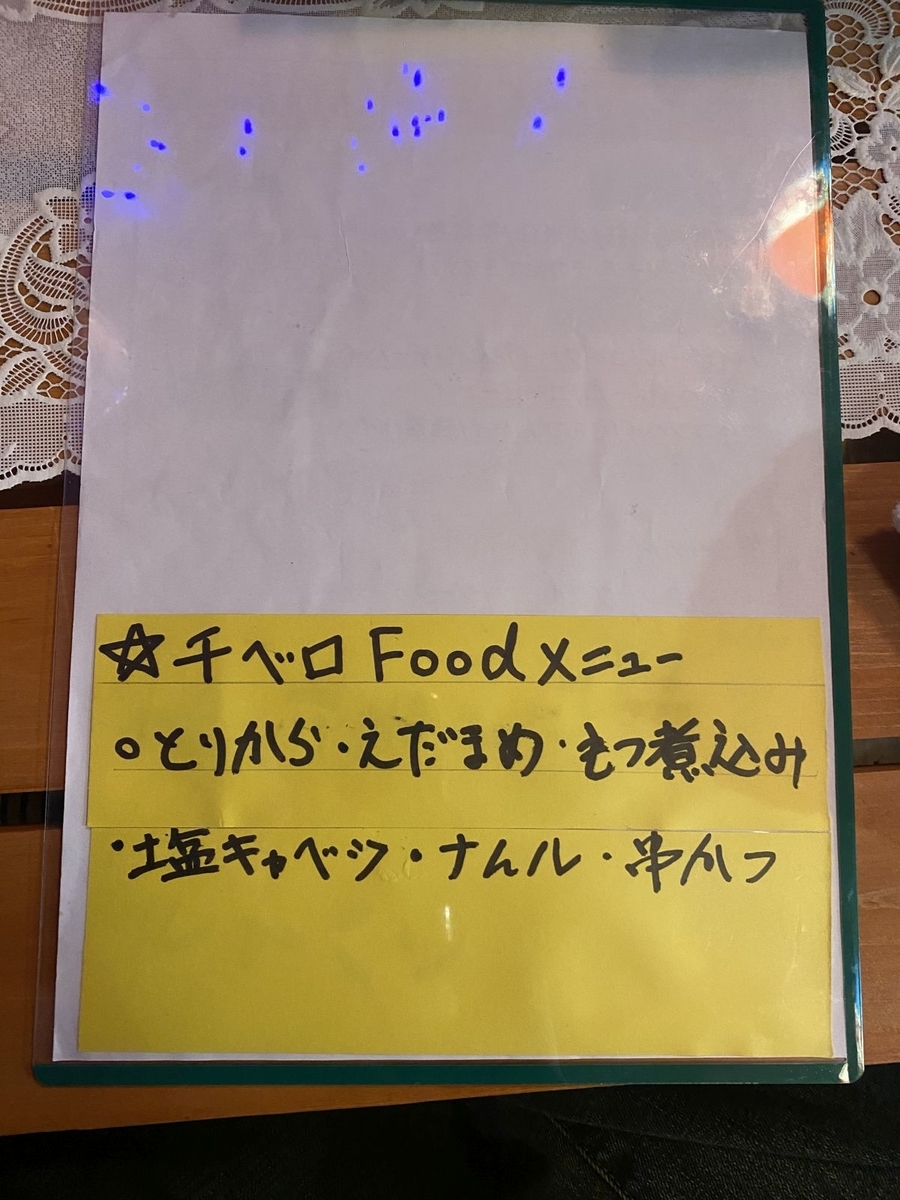 ☆千べロFoodメニュー
○とりから・えだまめ・もつ煮込み
・塩キャベツ・ナムル・串かつ